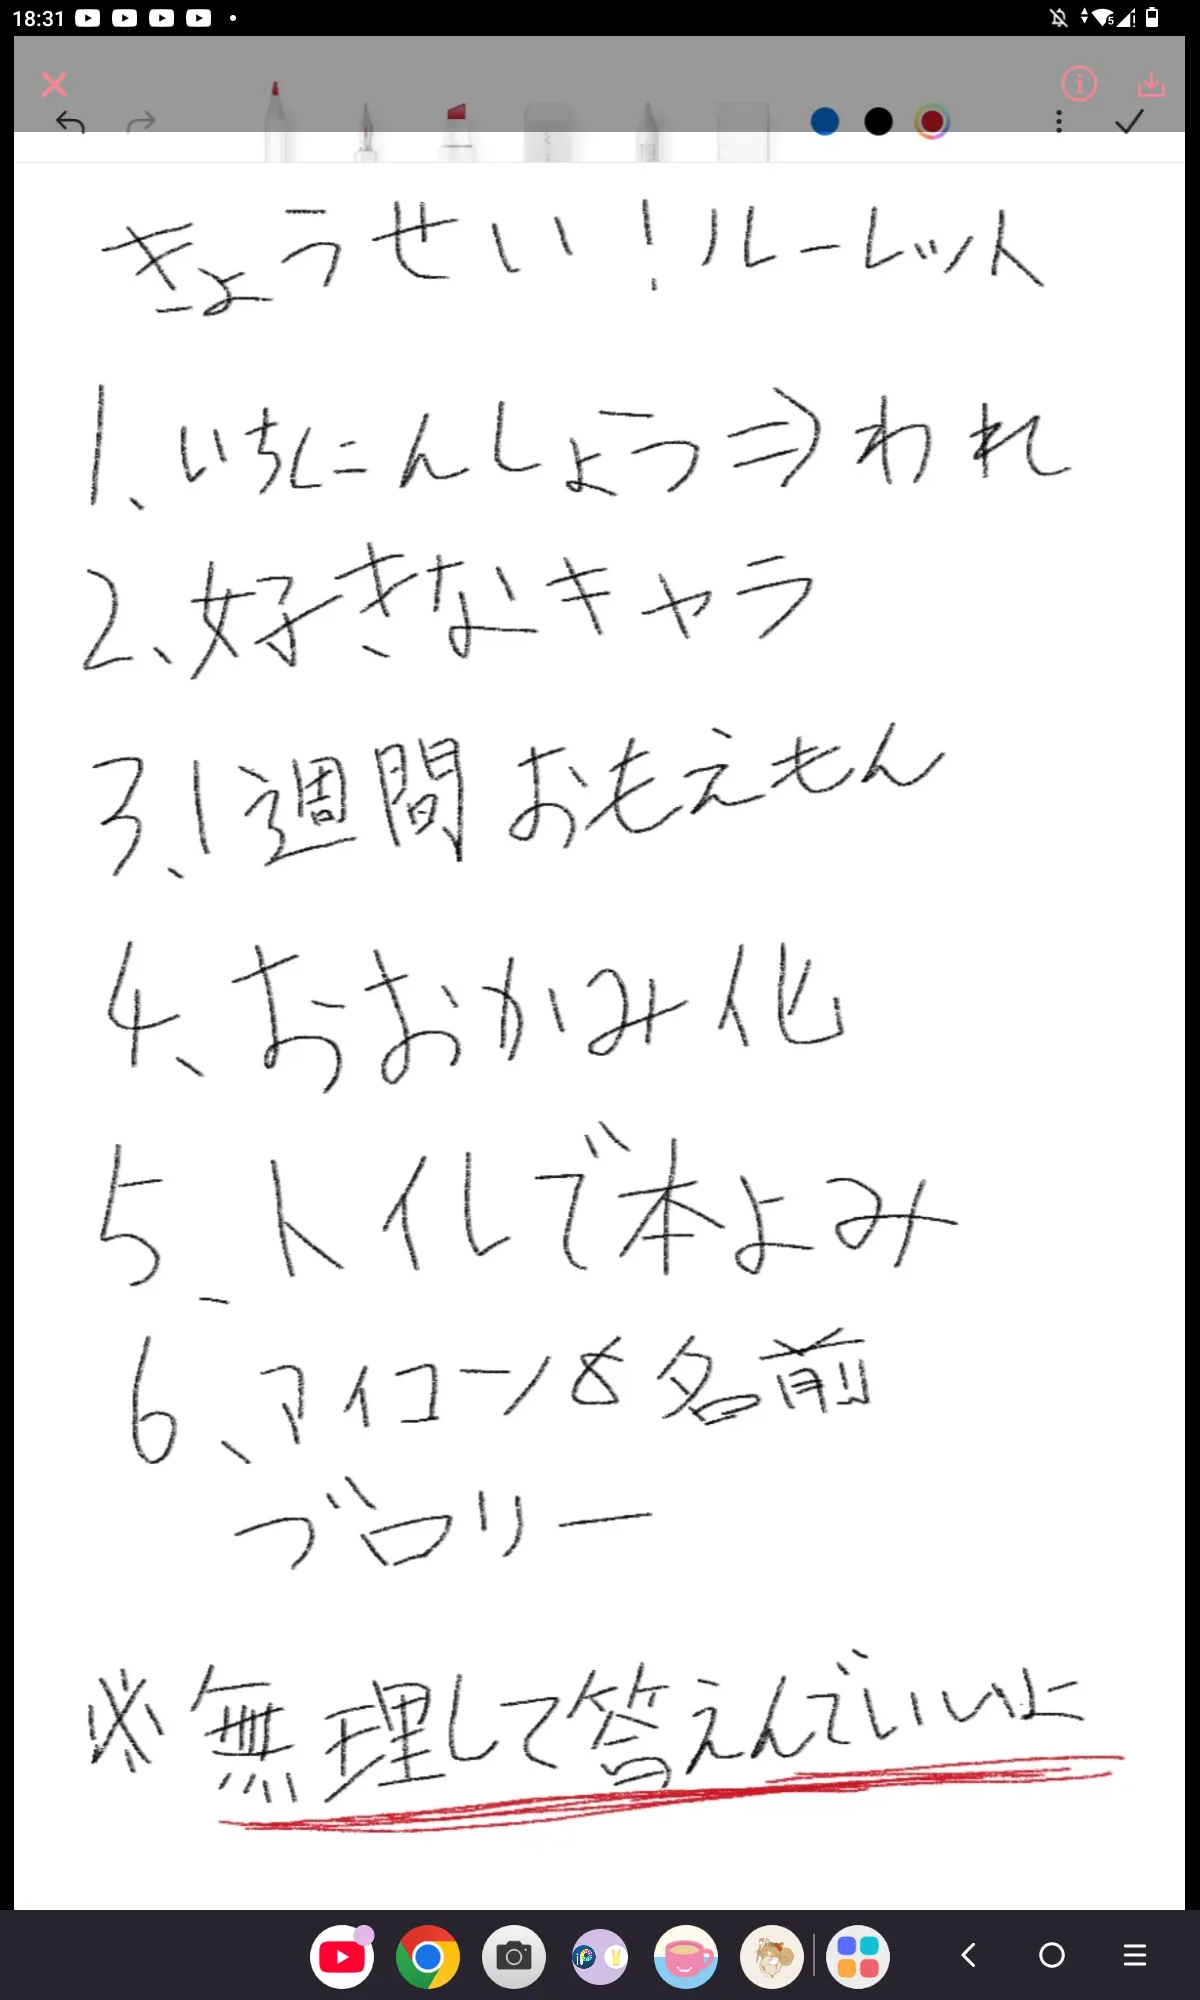 18:31
きょうせい!ルーレット
1、いちにんしょう⇒われ
2、好きなキャラ
3、1週間おもえもん
4、おおかみ化
5、トイレで本よみ
6、アイコン&名前
ブロリー
※無理して答えんでいいよ